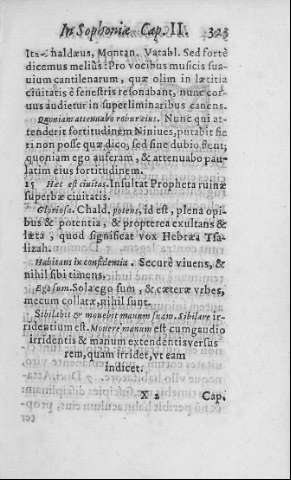 In Sophoniæ Cap. II. 323
Ita Chaldæus, Montan. Vatabl. Sed fortè
dicemus meliùs: Pro vocibus musicis sua-
uium cantilenarum, quæ olim in lætitia
ciuitatis è fenestris resonabant, nunc cor-
uus audietur in superliminaribus canens.
Quoniam attenuabo robur eius. Nunc qui at-
tenderit fortitudinem Niniues, putabit fie-
ri non posse quæ dico, sed sine dubio fient;
quoniam ego auferam, & attenuabo pau-
latim eius fortitudinem.
15 Hæc est ciuitas. Insultat Propheta ruinæ
superbæ ciuitatis.
Gloriosa. Chald. potens, id est, plena opi-
bus & potentia, & propterea exultans &
læta, quod significat vox Hebræa Tsa-
lizah.
Habitans in confidentia. Securè viuens, &
nihil sibi timens.
Ego sum. Sola ego sum, & cæteræ vrbes,
mecum collatæ, nihil sunt.
Sibilabit & mouebit manum suam. Sibilare ir-
ridentium est. Mouere manum est cum gaudio
irridentis & manum extendentis versus
rem, quam irridet, vt eam
indicet.
X 2 Cap.